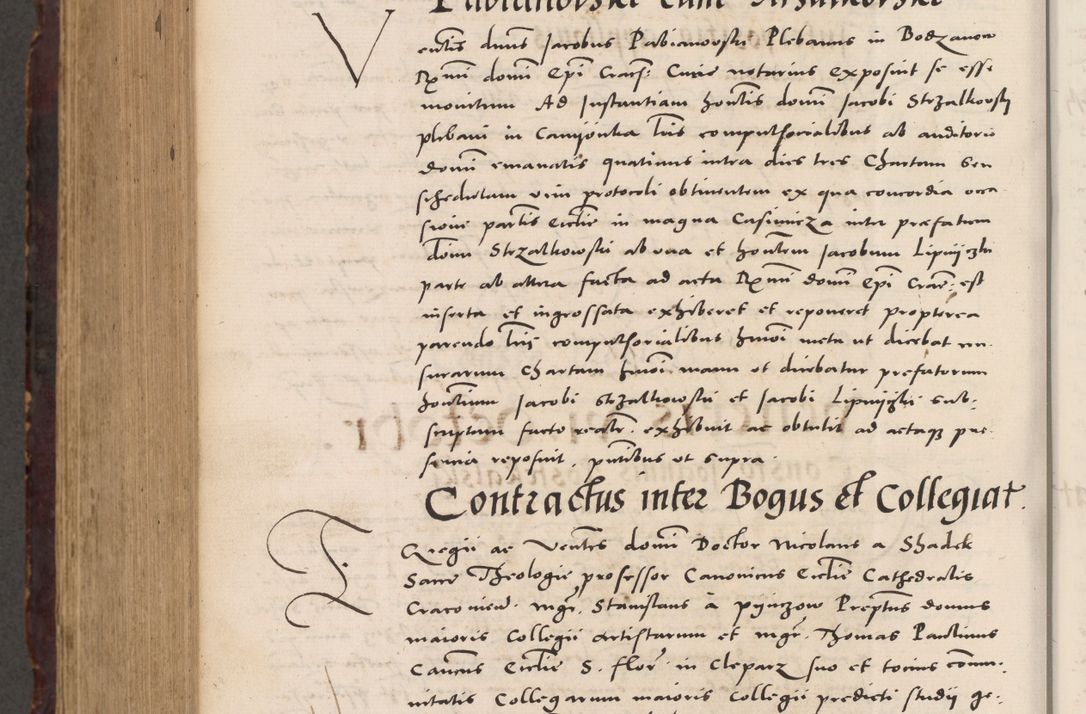 Pabianowski cum Strzalkowski
Ventis dnus Jacobus Pabianowski Plebanus in Bodzanow
Rxmi domi Epi Cracs: Curie notarius exposuit se esse
monitum Ad Instantiam hontis domi Jacobi Strzalkowski
plebani in Camijonka lris compulsorialibus ab auditorio
domi emanatis quatinus intra dies tres Chartam seu
schedulam vim protocoli obtinentem ex qua concordia occa
sione partis Ecclie in magna Casimirza inter prefatum
domi Strzalkowski ab vna et hontem Jacobum Lipnijczki
parte ab altera facta ad acta Rxmi domi Epi Crac: est
inserta et ingrossata exhiberet et reponeret propterea
parendo lris compulsorialibus hmoi metu ut dicebat cen
surarum Chartam hmoi manu ut dicebatur prefatorum
hontium Jacobi Strzalkowski et Jacobi Lipnijczki sub
scriptam facto realr exhibuit ac obtulit ad actaq pre
sencia reposuit. pntibus ut supra.
Contractus inter Bogus et Collegiat.
Egregii ac Ventes domi Doctor Nicolaus a Shadek
Sacre Theologie professor Canonicus Ecclie Cathedralis
Cracovien. mgr. Stanislaus a pijnczow Preptus domus
maioris Collegii artistarum et mgr. Thomas Paulinus
Canus Ecclie S. flor. in Cleparz suo et tocius comu
nitatis Collegarum maioris Collegii predicti studij ge